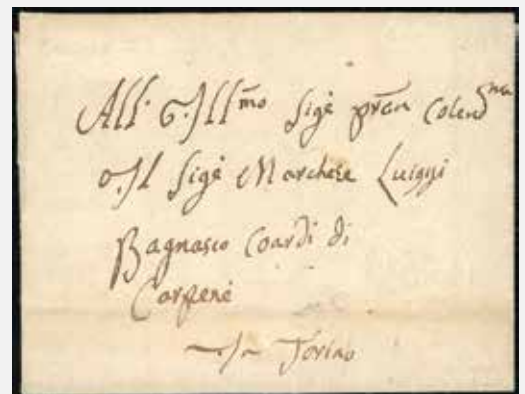 All' Ill.mo Sig.e pron Colen.mo
Il Sig.e Marchese Luiggi
Bagnasco Coardi di
Carpené
Torino